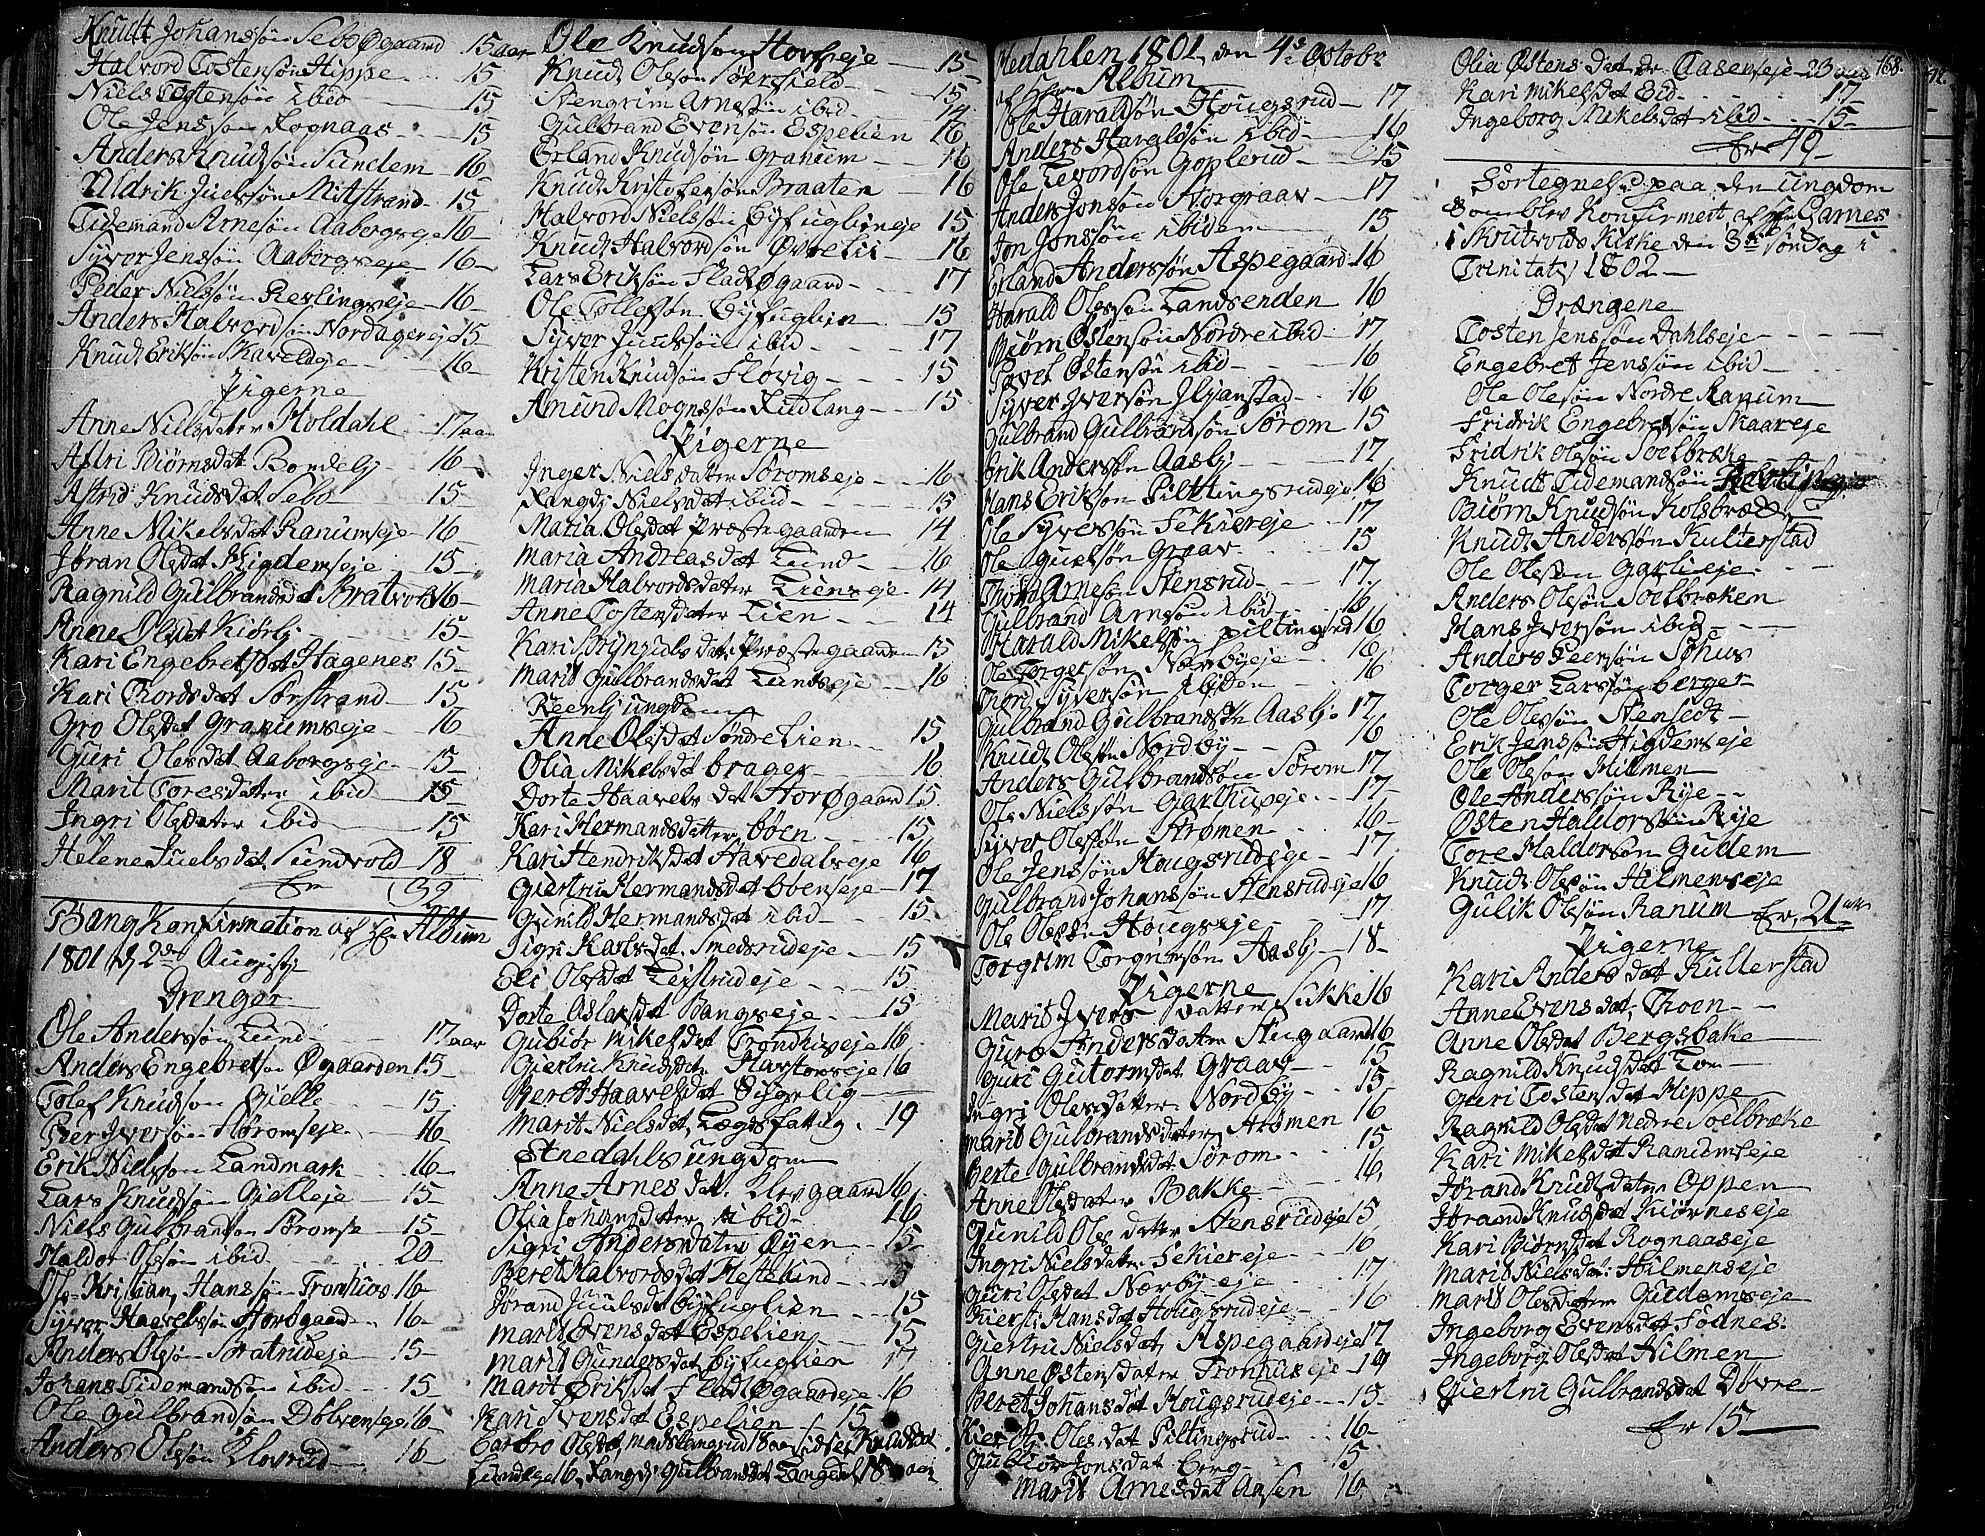 Knudt Johanssøn Sebo Øgaard 15 aar
Halvord Tostensøn Hippe 15
Niels Tostensøn ibid 15
Ole Jenssøn Rognaas 15
Anders Knudsøn Sundem 16
Uldrik Juelssøn Mitstrand 15
Tidemand Arnesøn Aabergseje 16
Syver Jensøn Aabergseje 16
Peder Nielsøn Revlingseje 16
Anders Halvordsøn Nordagereje 15
Knudt Eriksøn Skaveldeje 16
Pigerne
Anne Nielsdater Holdahl 17 aar
Astri Biørnsdat Bondeby 16
Astrid Knudsdat Sebo 15
Anne Mikelsdat Ranumseje 16
Jøran Olsdat Kigdemseje 15
Ragnild Gulbrandsdat Bratvold 16
Anne Olsdat Kiørly 15
Kari Engebretsdat Hagenes 15
Kari Thordsdat Sørstrand 15
Gro Olsdat Granumseje 16
Guri Olesdat Aaborgseje 15
Marit Toresdater ibid 15
Ingri Olsdater ibid 15
Helene Juelsdat Sundvold 18
Er 39
Bang Konfirmation af Hr Album
1801 d 2de Augusti
Drenger
Ole Andersøn Lund 17 aar
Anders Engebretsøn Øgaarden 15
Tolef Knudsøn Gielle 15
Peer Iversøn Søromseje 16
Erik Nielssøn Landmark 16
Lars Knudsøn Gielleje 15
Niels Gulbrandsøn Søromse 15
Haldor Olssøn ibid 20
Ole Kristian Hanssøn Tronhus 16
Syver Haavelssøn Horøgaard 16
Anders Olsøn Bratrudeje 15
Johans Tidemandsøn ibid 15
Ole Gulbrandsøn Dølvenseje 16
Anders Olsøn Klovrud 16
Ole Knudsøn Hovseje 15
Knudt Olssøn Bersield 15
Stengrim Arnesøn ibid 14
Gulbrand Evensøn Espelien 16
Erland Knudsøn Granum 16
Knudt Kristofersøn Braaten 16
Halvord Nielssøn Byfuglieneje 15
Knudt Halvordsøn Øvrelii 16
Lars Eriksøn Fladøgaard 17
Ole Tollefsøn Byfuglien 15
Syver Juulsøn ibid 17
Kristen Knudsøn Fløvig 15
Amund Mognssøn Kildlang 15
Pigerne
Inger Nielsdatter Søromseje 16
Rangdi Nielsdat ibid 15
Maria Olsdat Præstegaarden 14
Maria Andreasdat Lund 16
Maria Halvordsdater Lienseje 14
Anne Tostensdater Lien 14
Kari Bryngulsdat Præstegaarden 15
Marit Gulbrandsdat Lundseje 16
Reenli ungdom
Anne Olsdat Søndrelien 15
Olia Mikelsdat Brager 16
Dorte Haavelsdat Horøgaard 15
Kari Hermandsdatter Bøen 15
Kari Hendriksdat Havedalseje 16
Giertru Hermandsdat Bøenseje 17
Gunild Hermandsdat ibid 15
Sigri Karlsdat Smedsrudeje 15
Eli Olsdat Leistrudeje 15
Dorte Aslaksdat Bangseje 15
Gubiør Mikelsdat Trondhuseje 16
Giertru Knudsdater Havtorseje 16
Beret Haavelsdat Bisgerlig
Marit Nielsdat Lægsfattig 19
Etnedahls ungdom
Anne Arnesdat Klevgaard 16
Olia Johansdater ibid 16
Sigri Andersdater Øyen 15
Beret Halvordsdat Hestekind 15
Jørand Juulsdat Byfuglien 15
Marit Evensdat Espelien 15
Marit Gundersdat Byfuglien 17
Marit Eriksdat Fladøgaardeje 16
Kari Ivensdat Espelien 15
Barbro Olsdat Madslangrud 18 aar Sidsel Knudsdat
Lundeje 16, Rangdi Gulbrandsdat Langedal 18 aar
Hedahlen 1801 den 4de Octobr
af Hr Album
Ole Haraldsøn Hougsrud 17
Anders Haraldsøn ibid 16
Ole Levordsøn Goplerud 15
Anders Jonsøn Storgraav 17
Jon Jonssøn ibiden 15
Erland Anderssøn Aspegaard 16
Harald Olssøn Landsenden 16
Biørn Østensøn Nordre ibid 17
Povel Østensøn ibid 16
Syver Iversøn Ildjanstad 16
Gulbrand Gulbrandsøn Sørom 15
Erik Andersøn Aasby 17
Hans Eriksøn Piltingsrudeje 16
Ole Syversøn Sekiereje 17
Ole Gulsøn Graav 15
Thord Arnesøn Stensrud 17
Gulbrand Arnesøn ibid 16
Harald Mikelsøn Piltingsrud 16
Ole Torgersøn Nørbyeje 16
Iver Syversøn ibiden 16
Gulbrand Gulbrandsøn Aasby 17
Knudt Olssøn Nordby 16
Anders Gulbrandsøn Sørom 17
Ole Nielssøn Garthuseje 17
Syver Olessøn Strømen 16
Ole Jenssøn Hougsrudeje 17
Gulbrand Johanssøn Stensrudeje 16
Ole Olessøn Hougseje 17
Torgrim Torgrimsøn Aasby 18
Pigerne
Marit Iversdatter Sukke 16
Guro Andersdatter Nugaard 16
Guri Gutormsdat Graav 15
Ingri Olesdatter Nordby 15
Marit Gulbrandsdater Strømen 16
Berte Gulbrandsdat Sørom 15
Anne Olsdater Bakke 16
Gunild Olesdatter Stensrudeje 15
Ingri Nielsdater Sekiereje 16
Guri Olsdat Nørbyeje 17
Kiersti Hansdat Hougsrudeje 16
Giertru Nielsdat Aspegaardeje 17
Anne Østensdater Tronhuseje 19
Beret Johansdat Hougsrudeje 15
Kiersti Olesdat Piltingsrud 16
Gubiør Jonsdat Berg 15
Marit Arnesdat Aasen 16
168.
Olia Østensdatr Aasenseje 23 aar
Kari Mikelsdat ibid 17
Ingeborg Mikelsdat ibid 15
Er 49
Fortegnelse paa den ungdom
som blev Konfirmert af Hr Garnes
i Skrutvolds Kirke den 3de Søndag i
Trinitatj 1802
Drængene
Tosten Jenssøn Dahlseje
Engebret Jenssøn ibid
Ole Olesøn Nordre Ranum
Fridrik Engebretsøn Skaareje
Fridrik Olesøn Soelbræke
Knudt Tidemandsøn
Biørn Knudsøn Kolsbræde
Knudt Anderssøn Kulterstad
Ole Olesøn Garlieje
Anders Olesøn Soelbræken
Hans Iversøn ibid
Anders Peersøn Søhus
Torger Larssøn Berger
Ole Olessøn Stensedt
Erik Jenssøn Higdemseje
Ole Olesøn Hilmen
Ole Anderssøn Rye
Østen Haldorsøn Rye
Tore Haldorsøn Gudem
Knudt Olesøn Hilmenseje
Gulik Olesøn Ranum Er, 21
Pigerne
Kari Andersdat Kullerstad
Anne Evensdat Thoen
Anne Olsdat Bergsbake
Ragnild Knudsdat Lom
Guri Tostensdat Hippe
Ragnild Olsdat Nedre Soelbræke
Kari Mikelsdat Ranumseje
Jørand Knudtsdater Oppen
Jørand Knudsdat Kiørneseje
Kari Biørnsdat Rognaaseje
Marit Nielsdat Hilmenseje
Marit Olesdater Guldemseje
Ingeborg Evensdat Fødnes
Ingeborg Olsdat Hilmen
Giertru Gulbrandsdat Døvre
Er 15